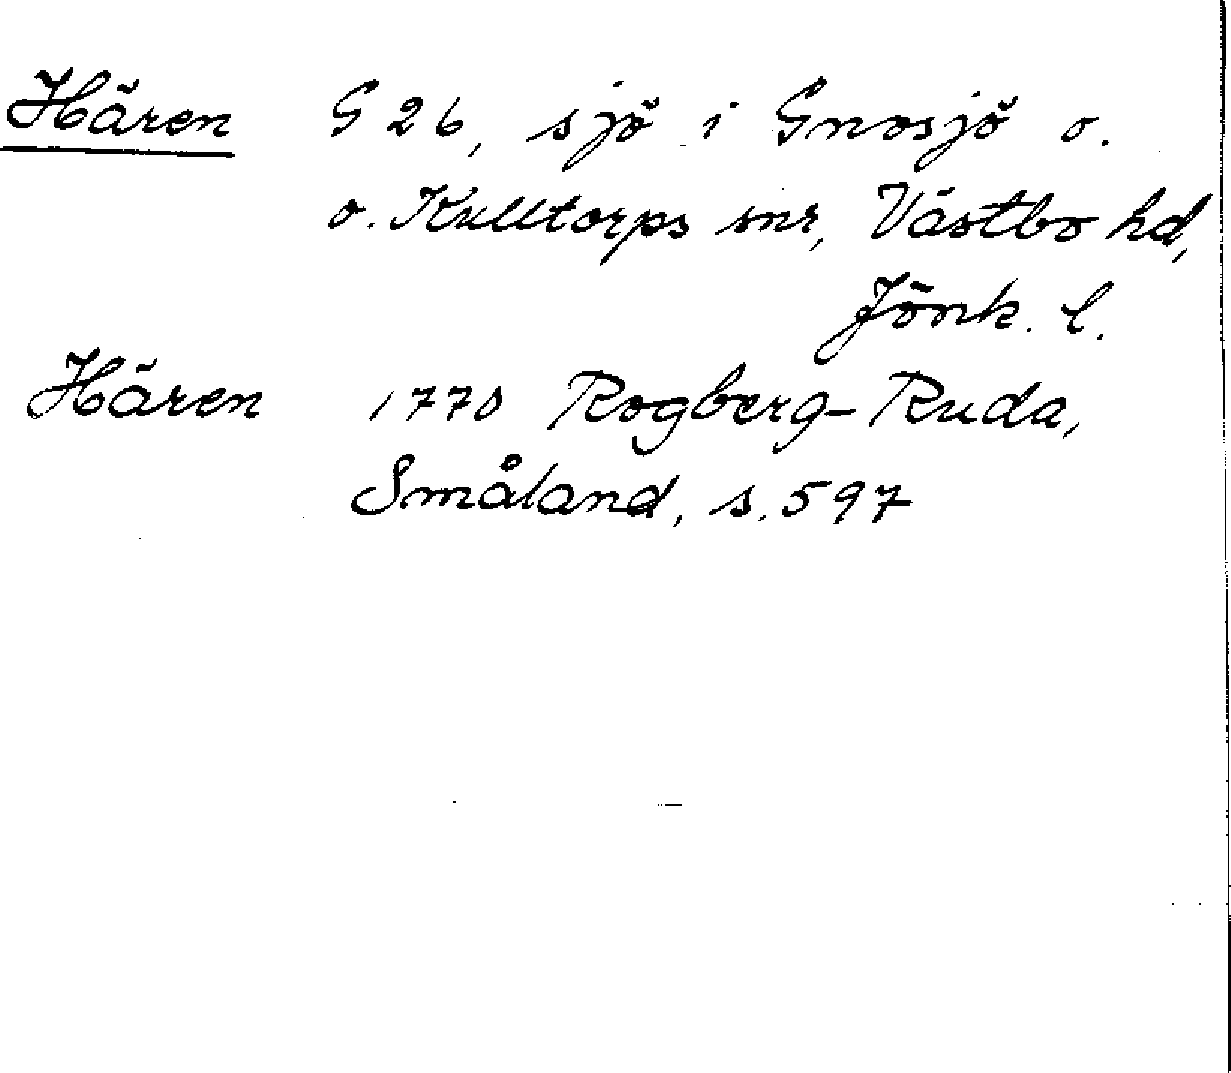 Hären G 26, sjö i Gnosjö o.
o. Kulltorps snr, Västbo hd,
Jönk. l.
Hären 1770 Rogberg-Ruda,
Småland, s. 597